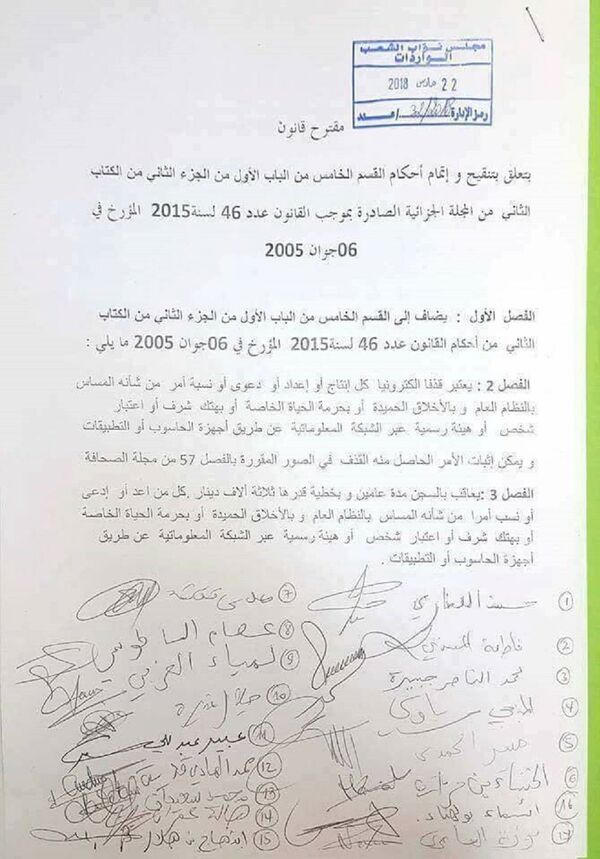 مجلس نواب الشعب
الواردات
22 مارس 2018
رمز الإدارة / عدد
مقترح قانون
يتعلق بتنقيح و إتمام أحكام القسم الخامس من الباب الأول من الجزء الثاني من الكتاب
الثاني من المجلة الجزائية الصادرة بموجب القانون عدد 46 لسنة2015 المؤرخ في
06جوان 2005
الفصل الأول : يضاف إلى القسم الخامس من الباب الأول من الجزء الثاني من الكتاب
الثاني من أحكام القانون عدد 46 لسنة2015 المؤرخ في 06جوان 2005 ما يلي :
الفصل 2 : يعتبر قذفا الكترونيا كل إنتاج أو إعداد أو دعوى أو نسبة أمر من شأنه المساس
بالنظام العام و بالأخلاق الحميدة أو بحرمة الحياة الخاصة أو بهتك شرف أو اعتبار
شخص أو هيئة رسمية عبر الشبكة المعلوماتية عن طريق أجهزة الحاسوب أو التطبيقات
و يمكن إثبات الأمر الحاصل منه القذف في الصور المقررة بالفصل 57 من مجلة الصحافة
الفصل 3 :يعاقب بالسجن مدة عامين و بخطية قدرها ثلاثة ألاف دينار .كل من اعد أو إدعى
أو نسب أمرا من شأنه المساس بالنظام العام و بالأخلاق الحميدة أو بحرمة الحياة الخاصة
أو بهتك شرف أو اعتبار شخص أو هيئة رسمية عبر الشبكة المعلوماتية عن طريق
أجهزة الحاسوب أو التطبيقات .
1 حسن العماري
2 فاطمة المسدي
3 محمد الناصر جبيرة
4
5
6 الخنساء بن حراث
16 أسماء بولهناء
17
7
8 عصام الماطوسي
9 لمياء الغربي
10 جلال غديرة
11 عبير عبدلي
12
13 محمد سعيدان
14 هالة عمران
15 ابتهاج بن هلال